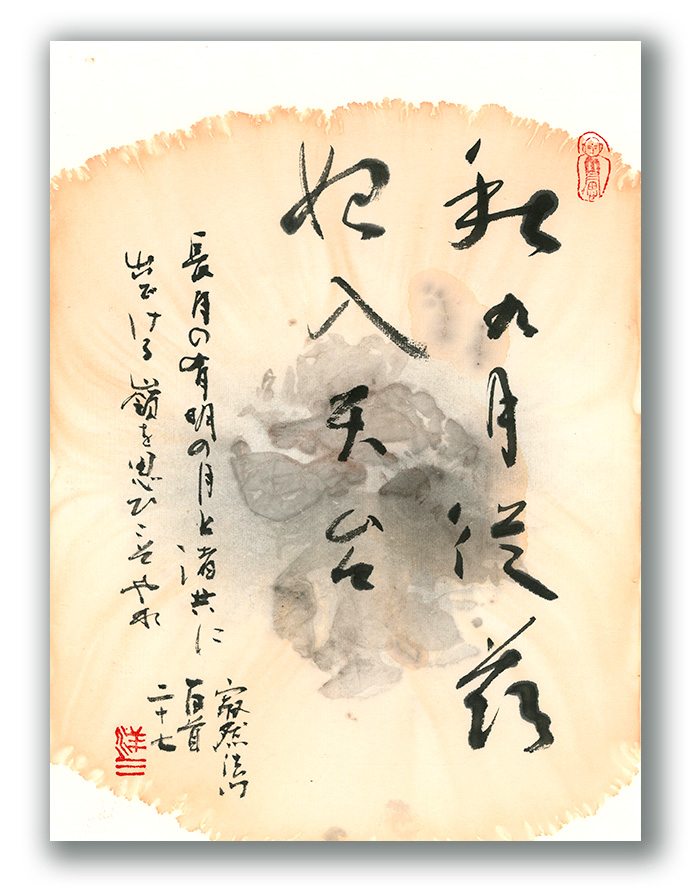 秋九月従茲
始入天台
長月の有明の月と諸共に
出でける嶺を思ひこそやれ
寂然法門
百首
二十七